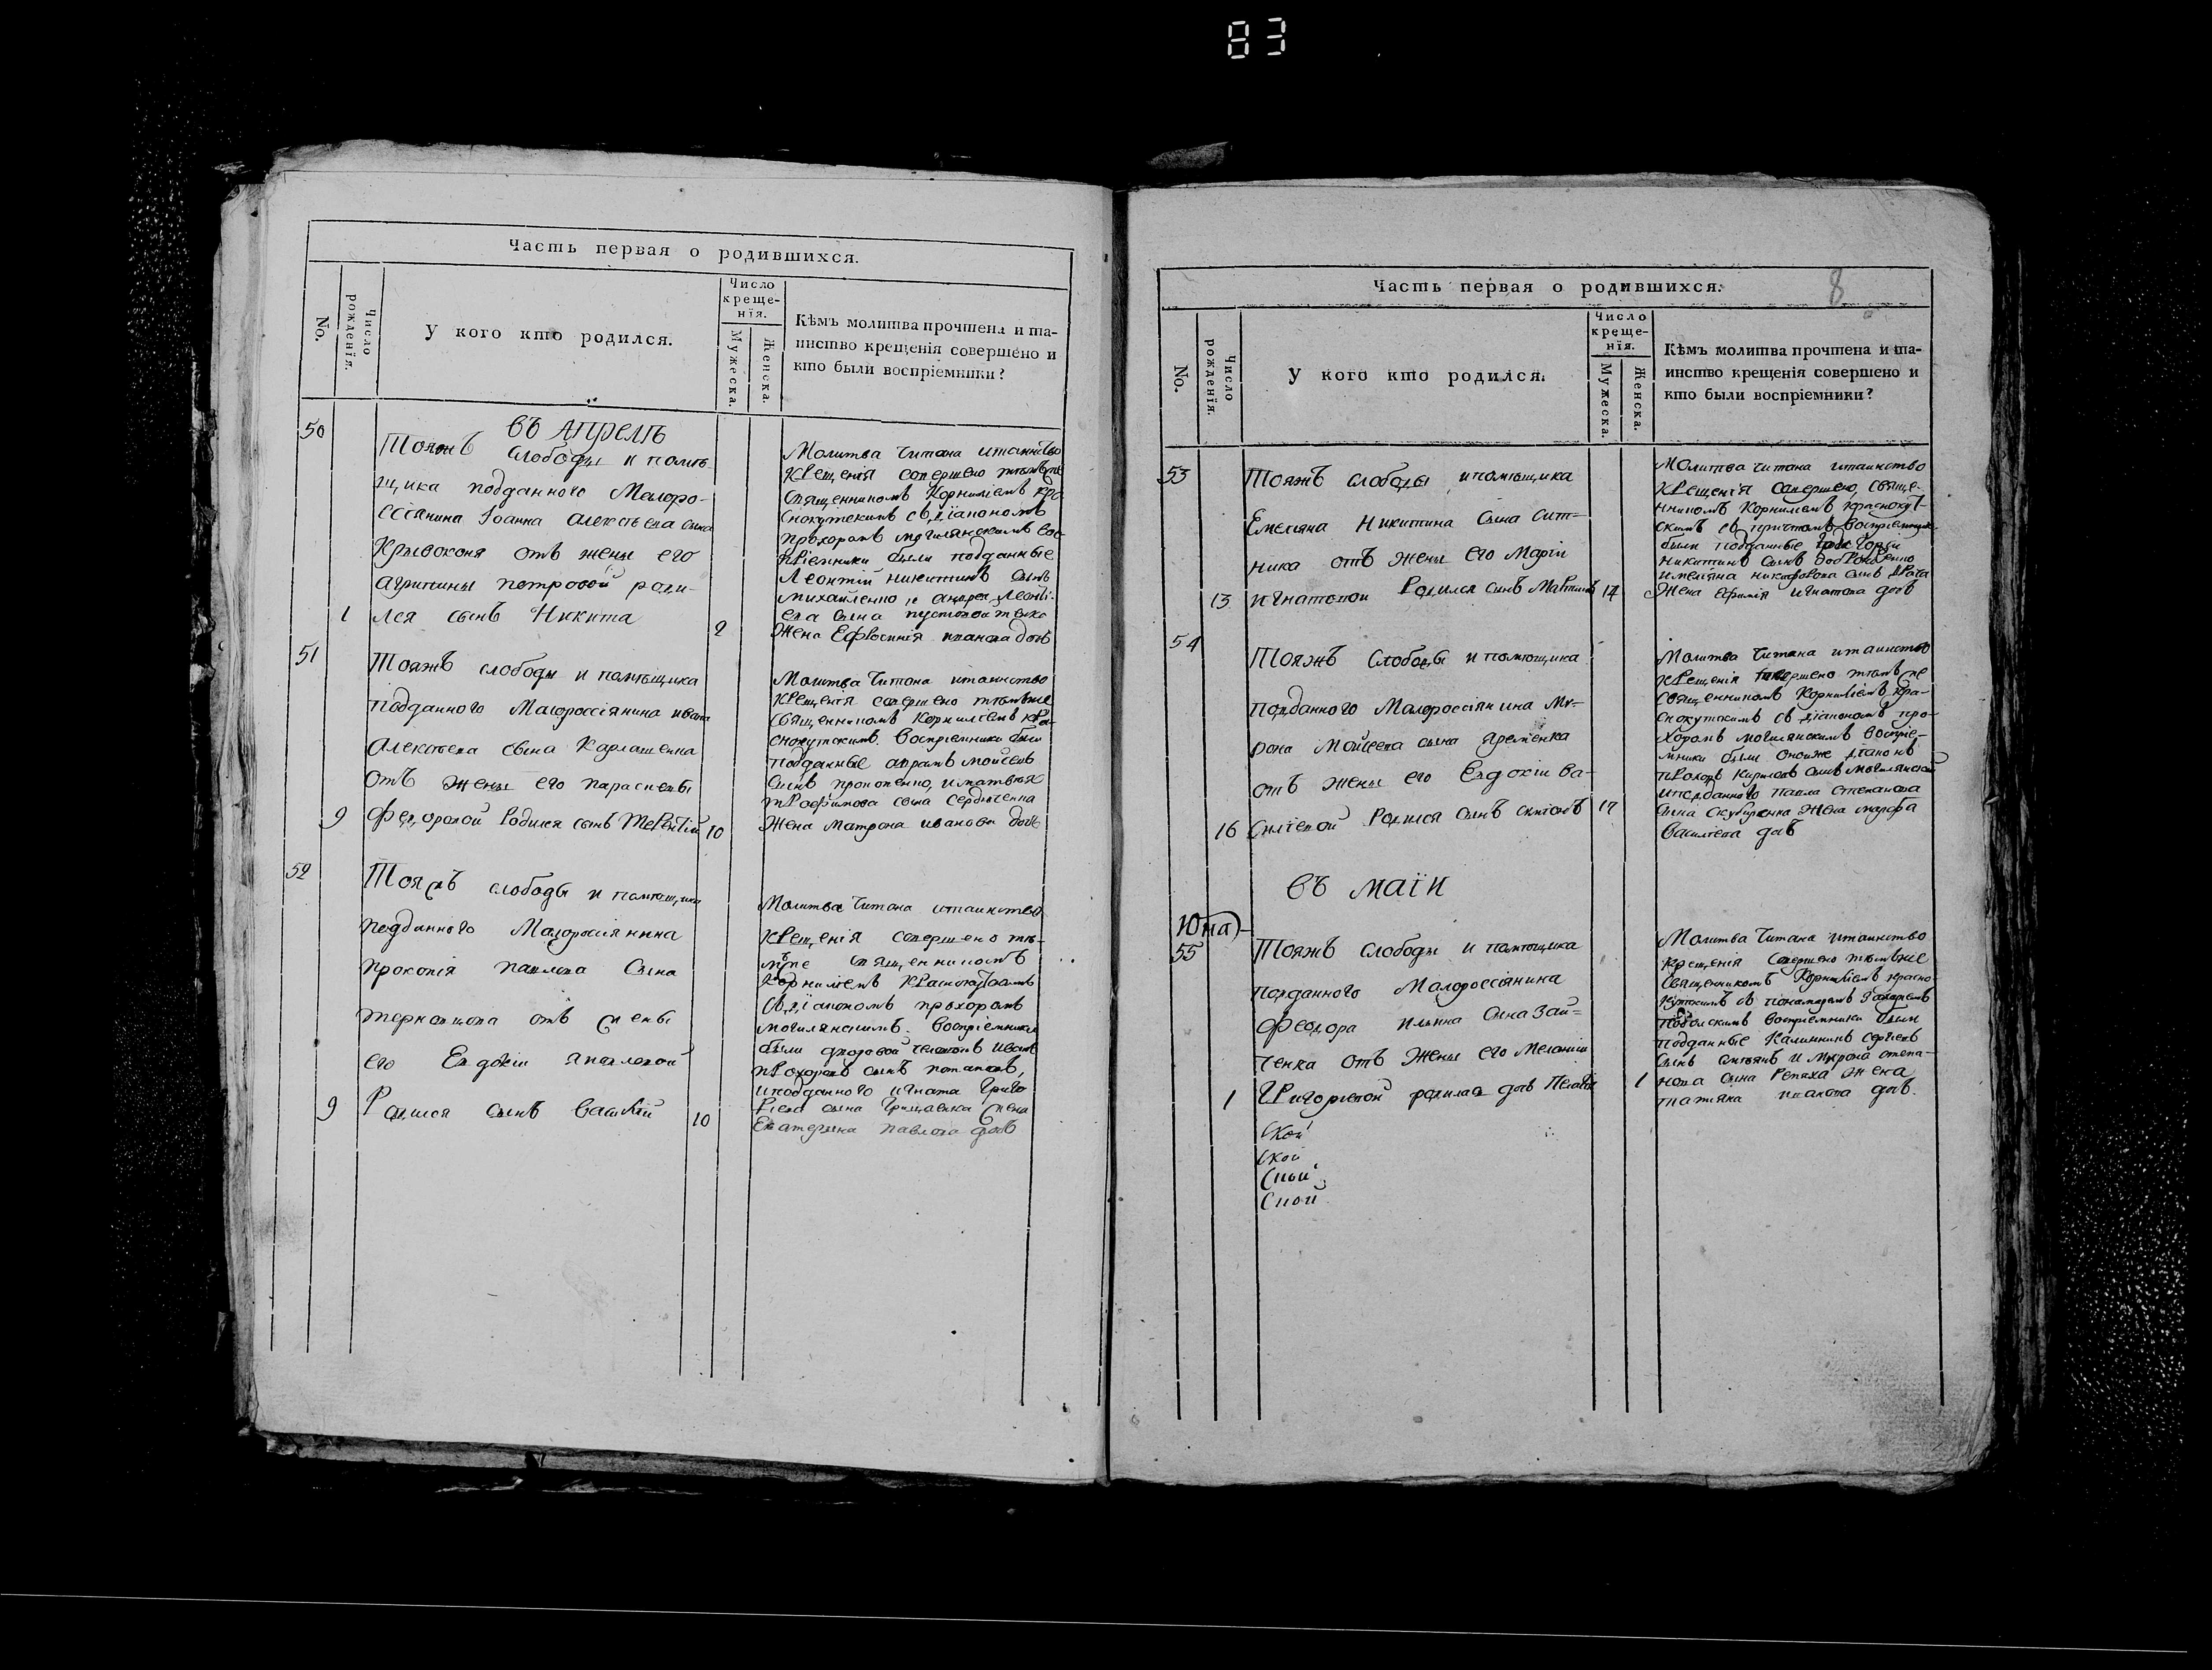 83
Часть первая о родившихся.
No.
Число рожденїя.
У кого кто родился.
Число
креще-
нїя.
Мужеска.
Женска.
Кѣмъ молитва прочтена и та-
инство крещенїя совершено и
кто были воспрїемники?
въ Апрелѣ
50
Тояжъ слободы и помѣ-
щика подданного Малоро-
ссїянина Іоанна Алексѣева сына
Крывоконя отъ жены его
Агрипины петровой роди-
1
лся сынъ Никита
2
Молитва читана итаинство
крещенїя совершено тѣмъже
Священникомъ Корнилїемъ кра-
снокутскимъ съ дїакономъ
прохоромъ могилянскимъ вос-
прїемники были подданные
Леонтїй никитинъ сынъ
михайленко и андрея Леонтї-
ева сына
жена Ефросинїя иванова дочь
51
Тояжъ слободы и помѣщика
подданного Малороссїянина ивана
Алексѣева сына Карлашенка
отъ жены его параскевы
9
Федоровой родился сынъ Терентїй
10
Молитва читана итаинство
крещенїя совершено тѣмъже
священникомъ Корнилїемъ кра-
снокутскимъ. воспрїемники были
подданные аврамъ мойсеевъ
сынъ прокопенко, и матвѣя
трофимова сына сердюченка
жена Матрона иванова дочь
52
Тояжъ слободы и помѣщика
подданного Малороссїянина
прокопїя павлова сына
отъ жены
его Евдокїи яковлевой
9
Родился сынъ Василїй
10
Молитва читана итаинство
крещенїя совершено тѣ-
мъже священникомъ
Корнилїемъ Краснокутскимъ
съ дїакономъ прохоромъ
могилянскимъ. воспрїемники
были дворовой человѣкъ иванъ
прохоровъ сынъ потаповъ,
иподданного игната григо-
рїева сына грищенка жена
Екатерина павлова дочь
8
Часть первая о родившихся.
No.
Число рожденїя.
У кого кто родился.
Число
креще-
нїя.
Мужеска.
Женска.
Кѣмъ молитва прочтена и та-
инство крещенїя совершено и
кто были воспрїемники?
53
Тояжъ слободы ипомѣщика
Емельяна Никитина сына Сит-
ника отъ жены его Марїи
13
игнатовой Родился сынъ Мартинъ
14
Молитва читана итаинство
крещенїя совершено, свяще-
нникомъ Корнилїемъ краснокут-
скимъ съ причтомъ воспрїемники
были подданные
никитинъ сынъ
имельяна никифорова сына
жена Ефимїя игнатова дочь
54
Тояжъ Слободы и помѣщика
подданного Малороссїянина Ми-
рона Мойсеева сына яременка
отъ жены его Евдокїи Ва-
16
силїевой Родился сынъ симеонъ
17
Молитва читана итаинство
крещенїя совершено тѣмъже
священникомъ Корнилїемъ кра-
снокутскимъ съ дїакономъ про-
хоромъ могилянскимъ воспрїе-
мники были онъже дїаконъ
прохоръ кириловъ сынъ могилянской
иподданного павла степанова
сына жена марфа
Василїева дочь
въ маїи
Юна)
55
Тояжъ Слободы и помѣщика
подданного Малороссїянина
Феодора ильина сына Зай-
ченка отъ жены его Меланїи
1
Григорїевой родилась дочь Пелагїя
1
Молитва читана итаинство
крещенїя совершено тѣмъже
Священникомъ Корнилїемъ красно-
кутскимъ съ пономаремъ Захарїемъ
воспрїемники были
подданные Калинникъ сергѣевъ
сынъ и Мирона степа-
нова сына Репяха жена
татїяна иванова дочь.
ской
ской
ской
ской